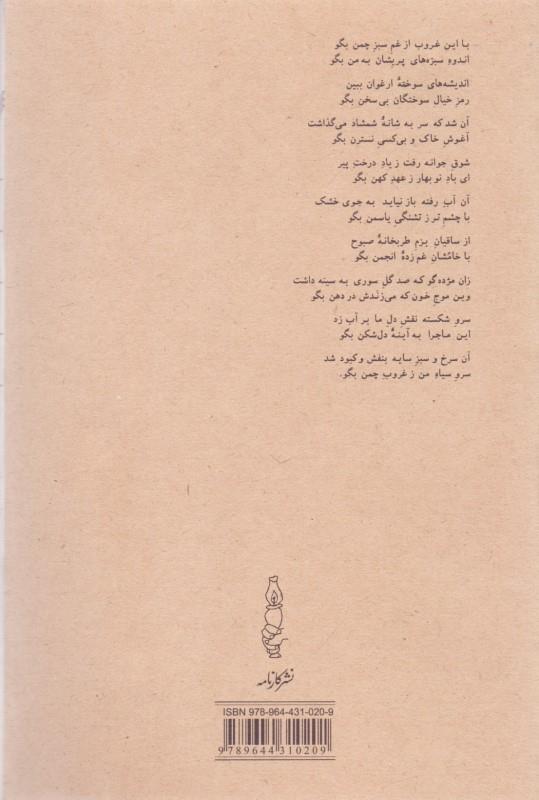 با این غروب از غم سبز چمن بگو
اندوهِ سبزه‌های پریشان به من بگو
اندیشه‌های سوختهٔ ارغوان ببین
رمز خیال سوختگان بی‌سخن بگو
آن شد که سر به شانهٔ شمشاد می‌گذاشت
آغوش خاک و بی‌کسیِ نسترن بگو
شوقِ جوانه رفت ز یادِ درختِ پیر
ای بادِ نوبهار ز عهدِ کهن بگو
آن آبِ رفته باز نیاید به جوی خشک
با چشمِ تر ز تشنگیِ یاسمن بگو
از ساقیانِ بزمِ طربخانهٔ صبوح
با خامُشانِ غم‌زدهٔ انجمن بگو
زان مژده گو که صد گلِ سوری به سینه داشت
وین موجِ خون که می‌زندش در دهن بگو
سروِ شکسته نقشِ دلِ ما بر آب زد
این ماجرا به آینهٔ دل‌شکن بگو
آن سرخ و سبزِ سایه بنفش و کبود شد
سروِ سیاهِ من ز غروبِ چمن بگو.
نشر کارنامه
ISBN 978-964-431-020-9
9 789644 310209